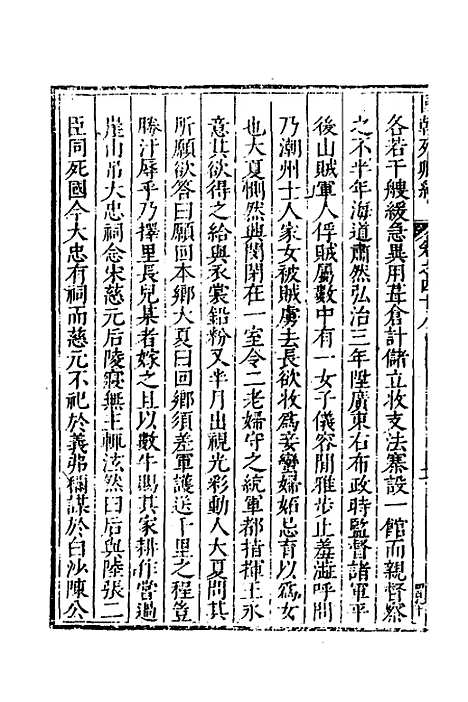 各若干艘緩急異用葺倉計儲立收支法寨設一館而親督察
之不半年海道肅然弘治三年陞廣東右布政時監督諸軍平
後山賊軍人俘賊屬數中有一女子儀容閒雅步止羞澁呼問
乃潮州士人家女被賊虜去長欲收為妾蠻婦妬忌有以為女
也大夏惻然與閔閉在一室令二老婦守之統軍都指揮王永
意其欲得之給與衣裳鉛粉又半月出視光彩動人大夏問其
所願欲答曰願回本鄉大夏曰回鄉須差軍護送千里之程豈
勝汙辱乎乃擇里長兒某者嫁之且以數牛賜其家耕作嘗過
崖山吊大忠祠念宋慈元后陵寢無主輒泫然曰后與陸張二
臣同死國今大忠有祠而慈元不祀於義弗稱謀於白沙陳公